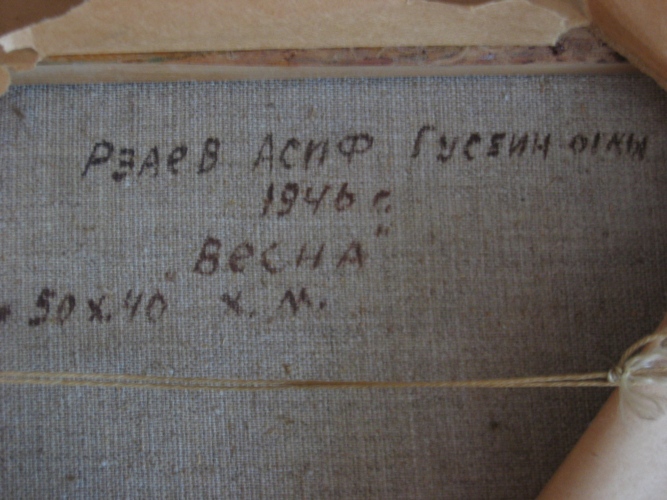 Рзаев Асиф Гусейн оглы
1946 г.
"Весна"
50х.40 х.м.